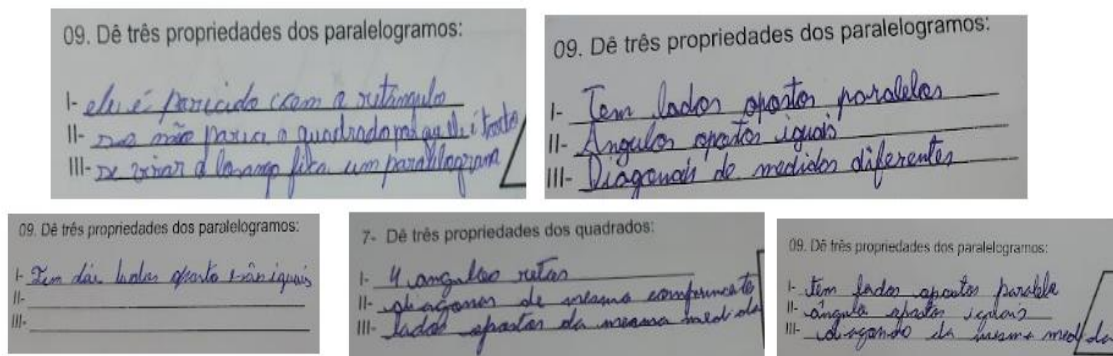 09. Dê três propriedades dos paralelogramos:
I- ele é parecido com o retângulo
II- não parece o quadrado ele é torto
III- Se virar o losango fica um paralelogramo
09. Dê três propriedades dos paralelogramos:
I- Tem lados opostos paralelos
II- Ângulos opostos iguais
III- Diagonais de medidas diferentes
09. Dê três propriedades dos paralelogramos:
I- Tem lados oposto iguais
II-
III-
7- Dê três propriedades dos quadrados:
I- 4 angulos retos
II- diagonais de mesmo comprimento
III- lados opostos da mesma medida
09. Dê três propriedades dos paralelogramos:
I- tem lados opostos paralelo
II- ângulo opostos iguais
III- diagonão da mesma medida